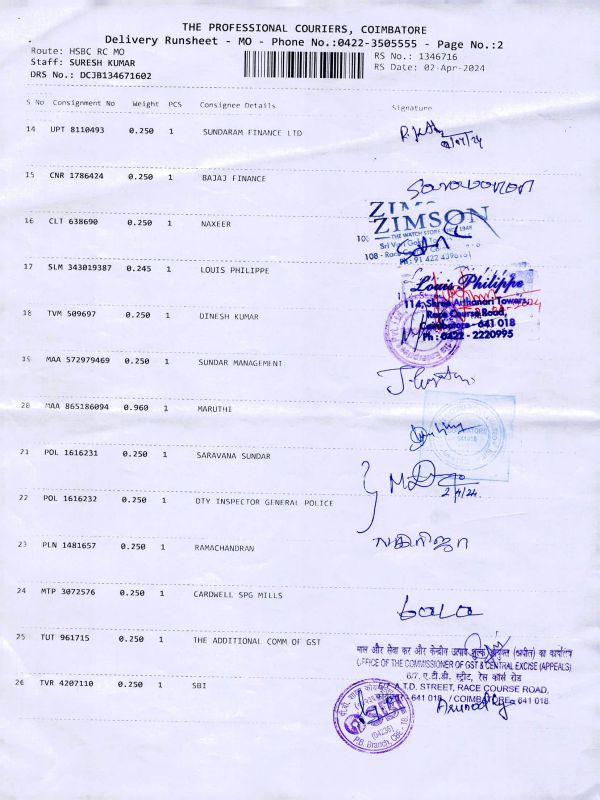 THE PROFESSIONAL COURIERS, COIMBATORE
Delivery Runsheet - MO - Phone No.:0422-3505555 - Page No.:2
Route: HSBC RC MO
RS No.: 1346716
Staff: SURESH KUMAR
RS Date: 02-Apr-2024
DRS No.: DCJB134671602
S No Consignment No Weight PCS Consignee Details Signature
14 UPT 8110493 0.250 1 SUNDARAM FINANCE LTD
15 CNR 1786424 0.250 1 BAJAJ FINANCE
16 CLT 638690 0.250 1 NAXEER
ZIMSON
THE WATCH STORE SINCE 1948
17 SLM 343019387 0.245 1 LOUIS PHILIPPE
Louis Philippe
114, Shree Arthanari Towers,
Race Course Road,
Coimbatore - 641 018
Ph : 0422 - 2220995
18 TVM 509697 0.250 1 DINESH KUMAR
19 MAA 572979469 0.250 1 SUNDAR MANAGEMENT
20 MAA 865186094 0.960 1 MARUTHI
641018
21 POL 1616231 0.250 1 SARAVANA SUNDAR
22 POL 1616232 0.250 1 DTY INSPECTOR GENERAL POLICE
2/4/24.
23 PLN 1481657 0.250 1 RAMACHANDRAN
24 MTP 3072576 0.250 1 CARDWELL SPG MILLS
bala
25 TUT 961715 0.250 1 THE ADDITIONAL COMM OF GST
माल और सेवा कर और केन्द्रीय उत्पाद शुल्क आयुक्त (अपील) का कार्यालय
OFFICE OF THE COMMISSIONER OF GST & CENTRAL EXCISE (APPEALS)
6/7, ए.टी.डी. स्ट्रीट, रेस कोर्स रोड
A.T.D. STREET, RACE COURSE ROAD,
641 018 / COIMBATORE - 641 018.
26 TVR 4207110 0.250 1 SBI
(04236)
P.B. Branch, CBE - 18